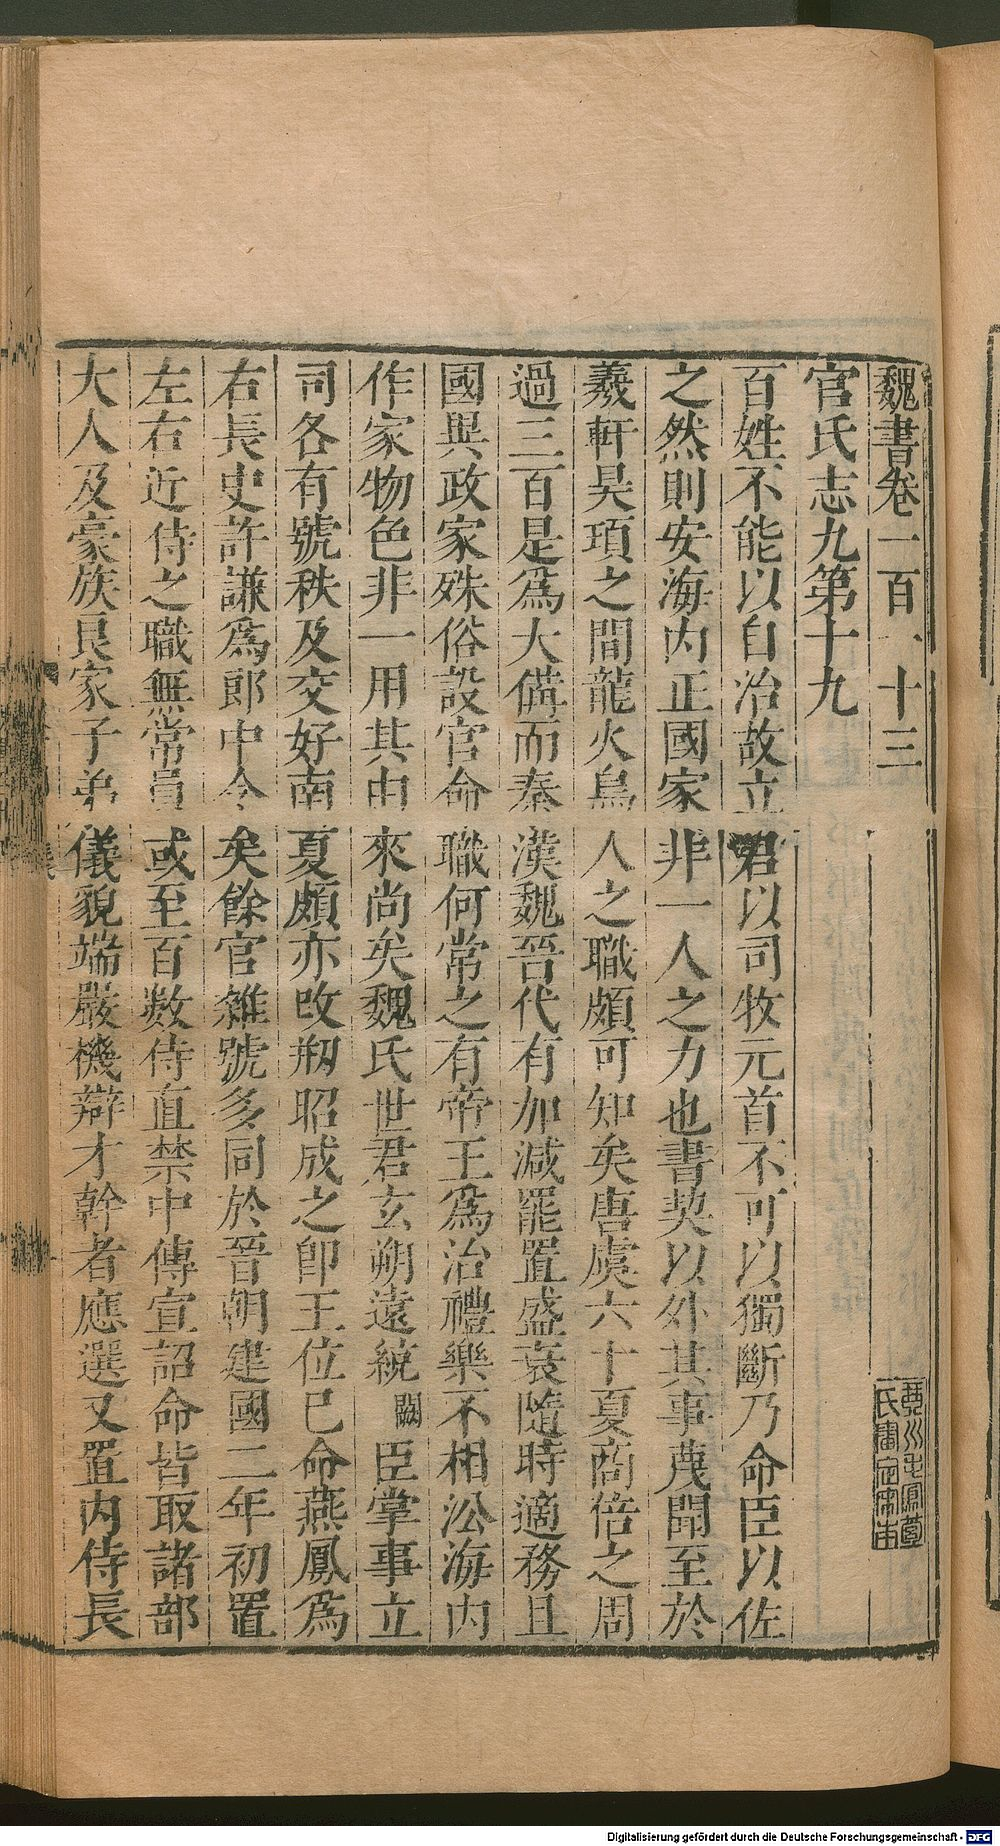 魏書卷一百一十三
官氏志九第十九
百姓不能以自治故立君以司牧元首不可以獨斷乃命臣以佐
之然則安海内正國家非一人之力也書契以外其事蔑聞至於
羲軒昊頊之間龍火鳥人之職頗可知矣唐虞六十夏商倍之周
過三百是爲大備而秦漢魏晉代有加減罷置盛衰隨時適務且
國異政家殊俗設官命職何常之有帝王爲治禮樂不相沿海内
作家物色非一用其由來尚矣魏氏世君玄朔遠統闕臣掌事立
司各有號秩及交好南夏頗亦改刱昭成之卽王位巳命燕鳳爲
右長史許謙爲郎中令矣餘官雜號多同於晉朝建國二年初置
左右近侍之職無常員或至百數侍直禁中傳宣詔命皆取諸部
大人及豪族良家子弟儀貌端嚴機辯才幹者應選又置内侍長
琴川毛鳳苞
氏審定宋本
Digitalisierung gefördert durch die Deutsche Forschungsgemeinschaft - DFG